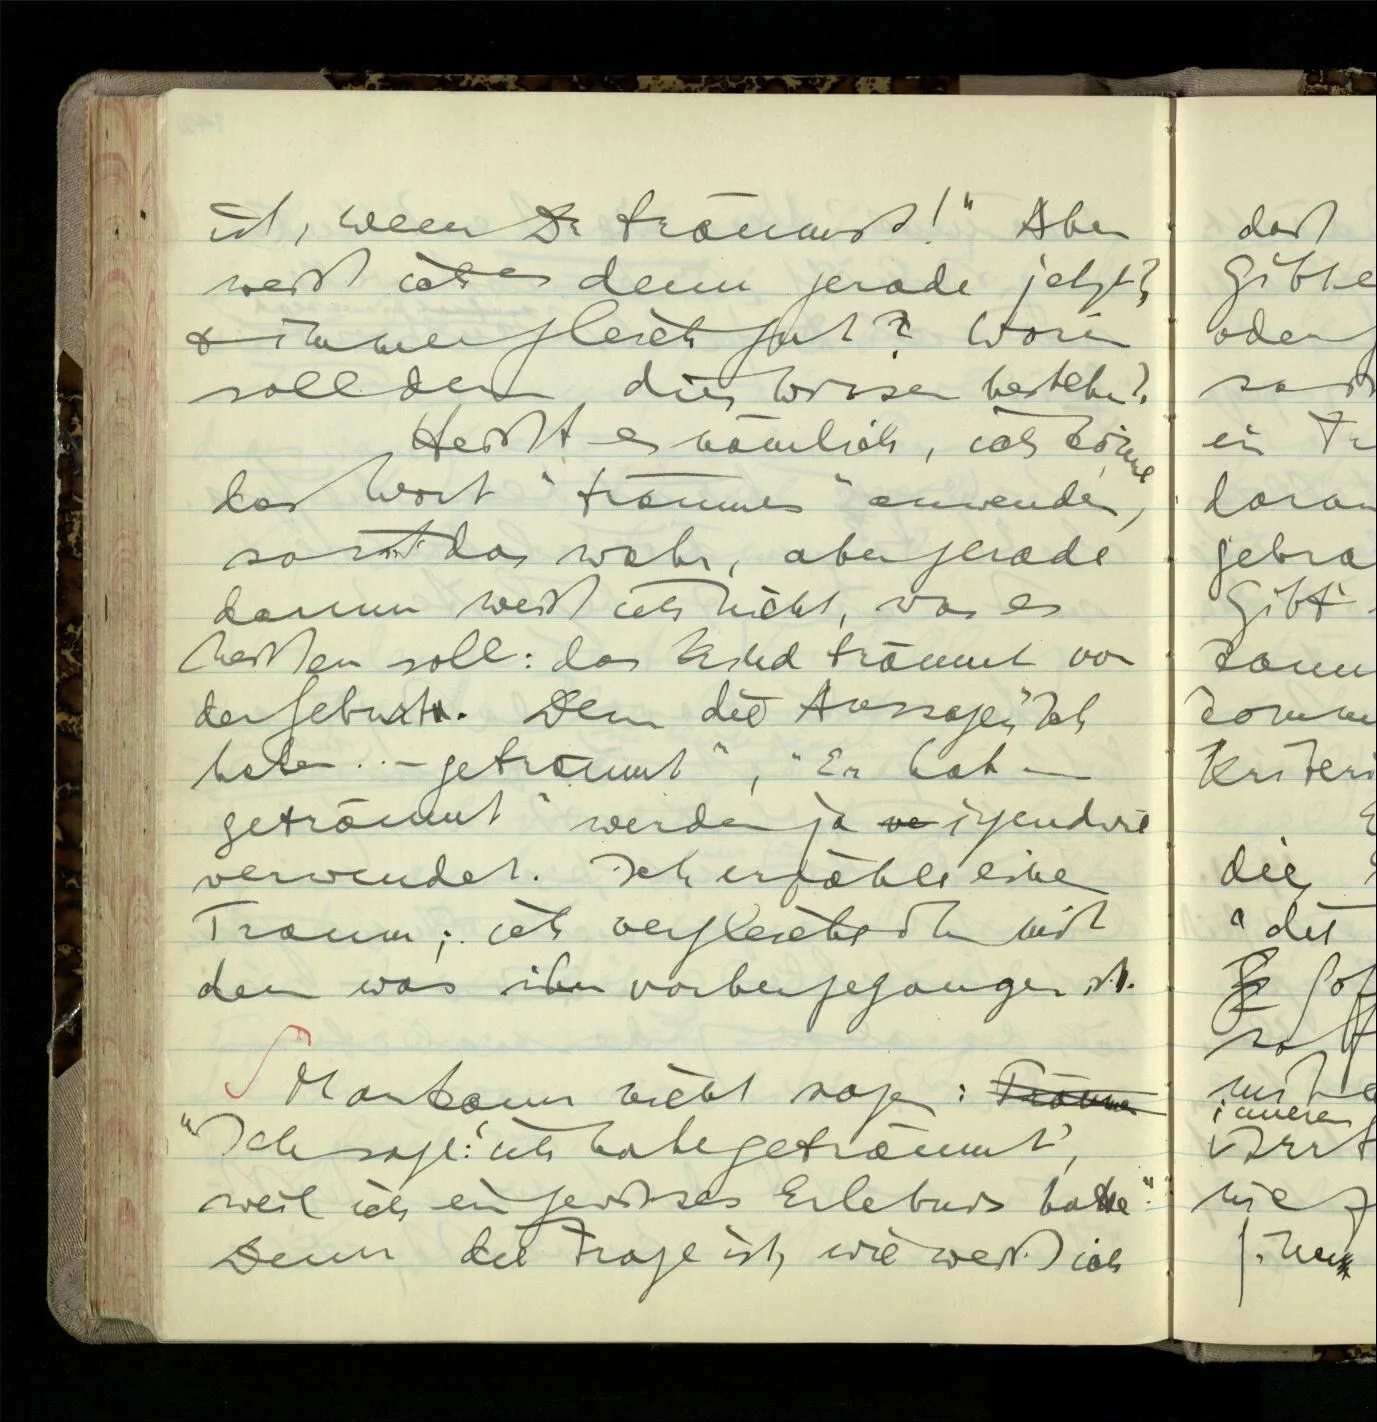 ist, wenn Du träumst!" Aber
weiß ich es denn gerade jetzt,
& immer gleich gut? Worin
soll denn dies Wissen bestehen?
Heißt es nämlich, ich könne
das Wort "träumen" anwenden,
so ist das wahr, aber gerade
darum weiß ich nicht, was es
heißen soll: das Kind träumt vor
der Geburt. Denn die Aussagen "Ich
habe .. – geträumt", "Er hat –
geträumt" werden ja ve irgendwie
verwendet. Ich erzähle einen
Traum; ich vergleiche ihn mit
dem was ihm vorhergegangen ist.
Man kann nicht sagen: Träumen
"Ich sage: 'ich habe geträumt',
weil ich ein gewisses Erlebnis hatte".
Denn die Frage ist, wie weiß ich
daß
Gibt e
oder
so
ein Tr
daran
gebra
Gibt
kann
komm
Kriteri
die
"die
so
mit
inneren
wie